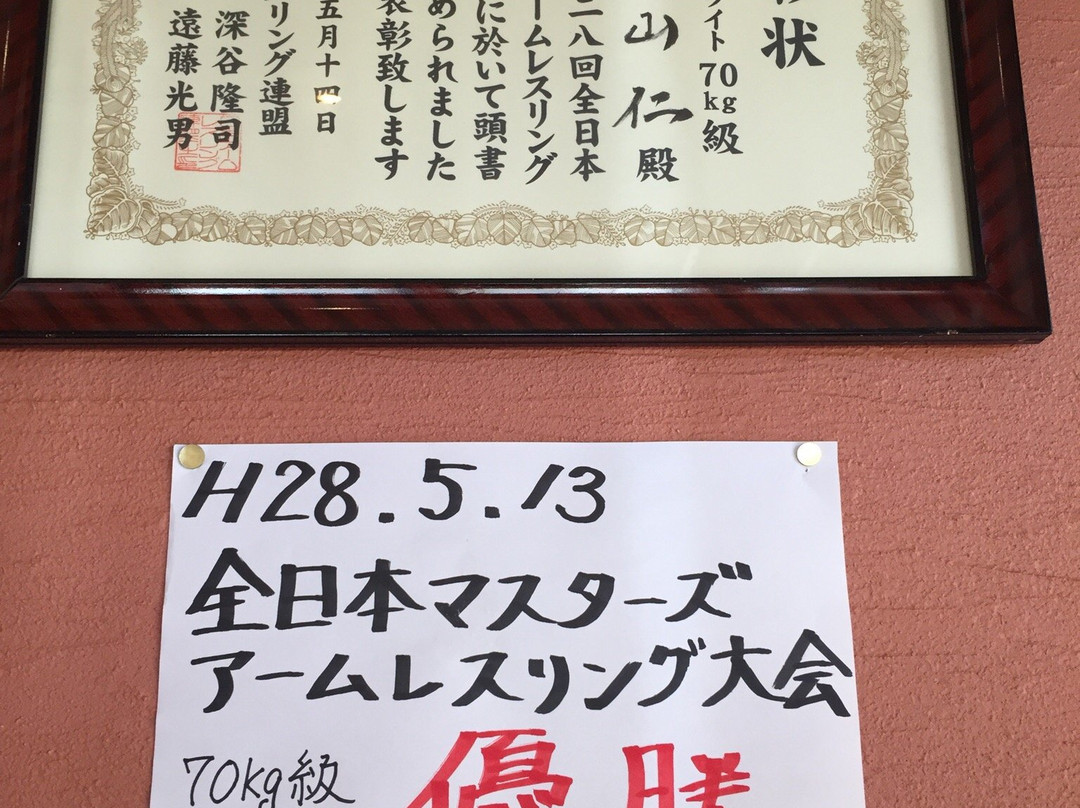 状
ライト70kg級
山仁殿
二八回全日本
ームレスリング
に於いて頭書
められました
表彰致します
五月十四日
リング連盟
深谷隆司
遠藤光男
H28.5.13
全日本マスターズ
アームレスリング大会
70kg級
優勝